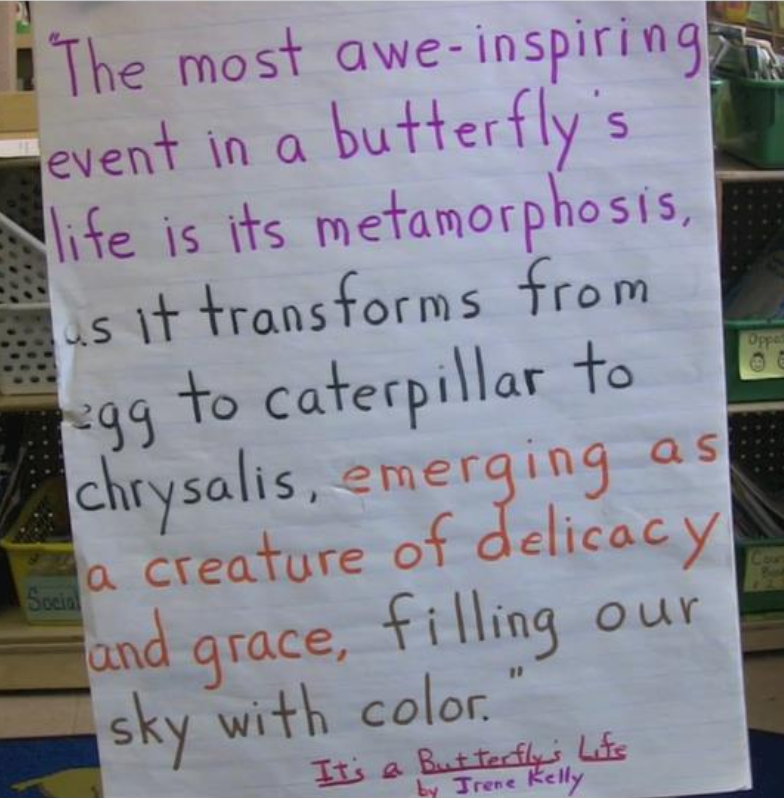 "The most awe-inspiring
event in a butterfly's
life is its metamorphosis,
as it transforms from
egg to caterpillar to
chrysalis, emerging as
a creature of delicacy
and grace, filling our
sky with color."
It's a Butterfly's Life
by Irene Kelly
Social